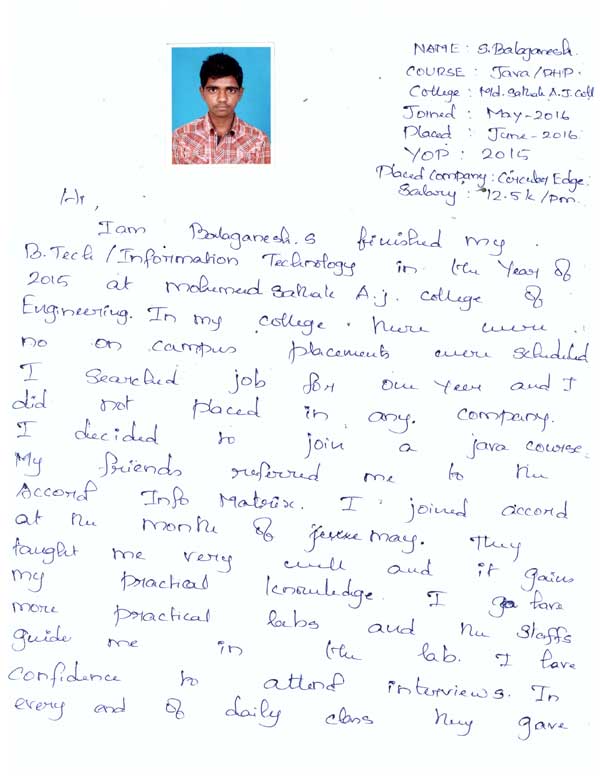 NAME : S.Balaganesh.
COURSE : Java/PHP.
College : Md. Sathak A.J. Coll
Joined : May-2016
Placed : June-2016
YOP : 2015
Placed Company : Circular Edge.
Salary : 12.5k/pm.
Hi,
I am Balaganesh.S finished my.
B.Tech/Information Technology in the Year of
2015 at mohamed Sathak A.j. college of
Engineering. In my college. there were.
no on campus placements were scheduled
I searched job for one year and I
did not placed in any. company.
I decided to join a java course.
My friends referred me to the
Accord Info Matrix. I joined accord
at the month of may. They
taught me very well and it gains
my practical knowledge. I have
more practical labs and the staffs
guide me in the lab. I have
confidence to attend interviews. In
every end of daily class they gave